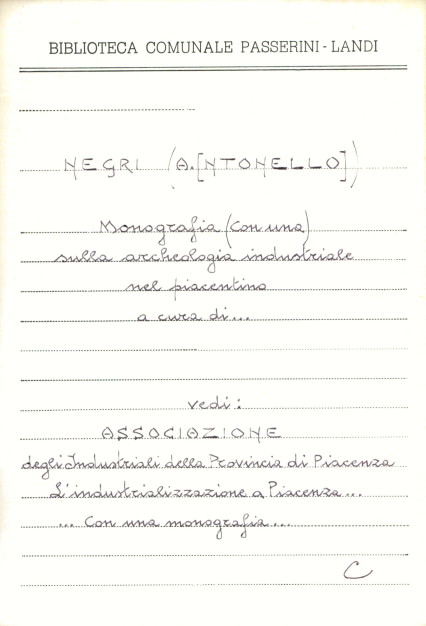 BIBLIOTECA COMUNALE PASSERINI-LANDI
NEGRI (A.[NTONELLO])
Monografia (Con una)
sulla archeologia industriale
nel piacentino
a cura di...
vedi:
ASSOCIAZIONE
degli Industriali della Provincia di Piacenza
L'industrializzazione a Piacenza...
... Con una monografia...
C